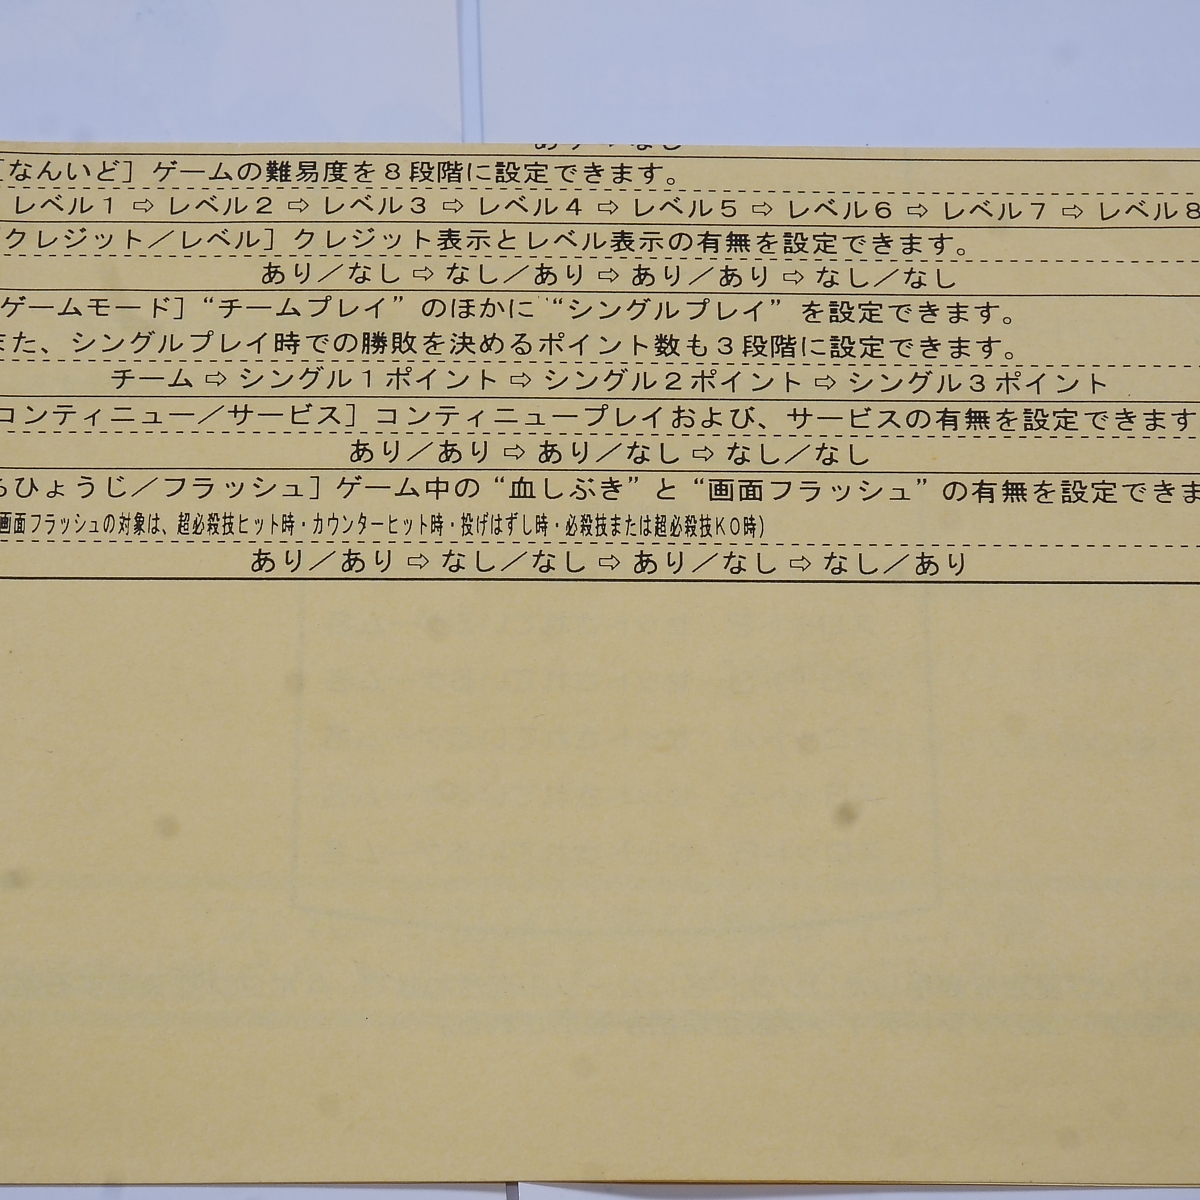 [なんいど] ゲームの難易度を8段階に設定できます。
レベル1 ⇨ レベル2 ⇨ レベル3 ⇨ レベル4 ⇨ レベル5 ⇨ レベル6 ⇨ レベル7 ⇨ レベル8
クレジット／レベル] クレジット表示とレベル表示の有無を設定できます。
あり／なし ⇨ なし／あり ⇨ あり／あり ⇨ なし／なし
ゲームモード] “チームプレイ” のほかに “シングルプレイ” を設定できます。
また、シングルプレイ時での勝敗を決めるポイント数も3段階に設定できます。
チーム ⇨ シングル1ポイント ⇨ シングル2ポイント ⇨ シングル3ポイント
コンティニュー／サービス] コンティニュープレイおよび、サービスの有無を設定できます
あり／あり ⇨ あり／なし ⇨ なし／なし
ひょうじ／フラッシュ] ゲーム中の “血しぶき” と “画面フラッシュ” の有無を設定できま
画面フラッシュの対象は、超必殺技ヒット時・カウンターヒット時・投げはずし時・必殺技または超必殺技KO時)
あり／あり ⇨ なし／なし ⇨ あり／なし ⇨ なし／あり